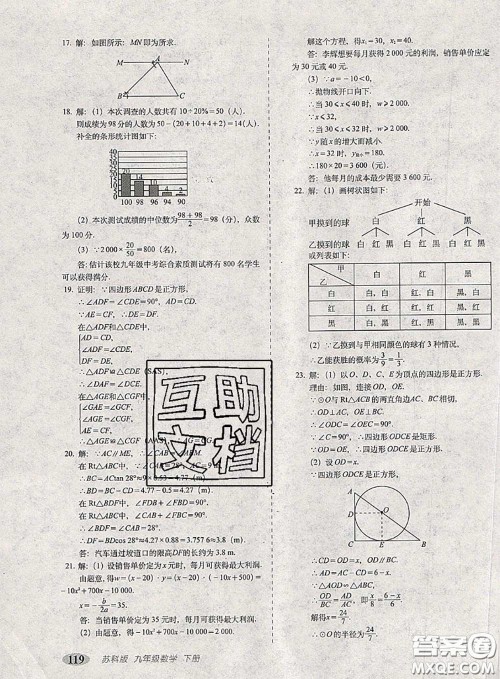 17. 解：如图所示：MN即为所求.
M A N
B C
18. 解：(1) 本次调查的人数共有 10÷20%=50（人），
则成绩为98分的人数为 50−(20+10+4+2)=14(人)
补全的条形统计图如下：
40
35
30
25
20
15
10
5
0
20
14
10
4
2
100 98 96 94 90
(2) 本次测试成绩的中位数为 98+98/2 =98（分），众数
为 100 分.
(3) ∵2000×20/50=800（名），
答：估计该校九年级中考综合素质测试将有 800 名学生
可以获得满分.
19. 证明：∵四边形 ABCD 是正方形，
∴∠ADF=∠CDE=90°，AD=CD.
∵AE=CF，∴DE=DF，
在△ADF和△CDE中，
AD=CD,
∠ADF=∠CDE,
DF=DE,
∴△ADF≌△CDE(SAS)，
∠AGE=∠CGF,
∠AEG=∠CFG,
AE=CF,
20. 解：∵AC∥ME，∴∠CAB=
在 Rt△ABC 中，∵∠CAB=28°，AC=9
∴BD=BC−CD=4.77−0.5=4.27(m)，
在 Rt△BDF 中，∠BDF+∠FBD=90°，
∴∠BDF=∠CAB=28°，
∴DF=BDcos 28°≈4.27×0.88=3.757 6≈3.8 (m)，
答：汽车通过坡道口的限高DF的长约为 3.8 m.
21. 解：(1) 设销售单价定为 x 元时，每月可获得最大利润.
由题意，得 w=(x−20)·y=(x−20)·(−10x+500)=
−10x²+700x−10000，
x=−b/2a=35.
答：当销售单价定为35元时，每月可获得最大利润.
(2) 由题意，得：−10x²+700x−10000=2000，
119 苏科版 九年级数学 下册
解这个方程，得 x₁=30，x₂=40.
答：李辉想要每月获得2 000元的利润，销售单价应
定为 30 元或 40 元.
(3) ∵a=−10<0，
∴抛物线开口向下.
∴当 30≤x≤40 时，w≥2000.
∵x≤32，
∴当 30≤x≤32 时，w≥2000.
∵y随x的增大而减小.
∴x=32时，y最小=180.
∵当进价一定时，
∴20×180=3 600（元），
答：他每月的成本最少需要 3 600 元.
22. 解：(1) 画树状图如下：
开始
甲摸到的球 白 红 黑
乙摸到的球 白 红 黑 白 红 黑 白 红 黑
或列表如下：
甲
乙
白 红 黑
白 白，白 红，白 黑，白
红 白，红 红，红 黑，红
黑 白，黑 红，黑 黑，黑
(2) ∵乙摸到与甲相同颜色的球有3种情况，
∴乙能获胜的概率为 3/9=1/3.
23. 解：(1) 以 O、D、C、E 为顶点的四边形是正方形.
理由：如图，连接 OD、OE.
∵⊙O与Rt△ABC的两直角边AC、BC相切，
∴∠ODC=∠OEC=90°.
又∵∠C=90°，∴四边形ODCE是矩形.
∵OD=OE，∴矩形ODCE是正方形.
(2) 设 OD=x.
∵四边形 ODCE 是正方形，
A
D O
C E B
∴OD∥AC，CD=OD=x.
∴AD=AC−CD=6−x.
∴△ADO∽△ACB，
∴⊙O的半径为 24/7.
互助
文档
答案圈
MXQE.COM